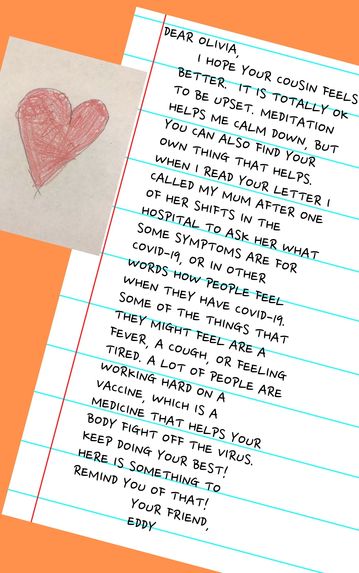 DEAR OLIVIA,
I HOPE YOUR COUSIN FEELS
BETTER. IT IS TOTALLY OK
TO BE UPSET. MEDITATION
HELPS ME CALM DOWN, BUT
YOU CAN ALSO FIND YOUR
OWN THING THAT HELPS.
WHEN I READ YOUR LETTER I
CALLED MY MUM AFTER ONE
OF HER SHIFTS IN THE
HOSPITAL TO ASK HER WHAT
SOME SYMPTOMS ARE FOR
COVID-19, OR IN OTHER
WORDS HOW PEOPLE FEEL
WHEN THEY HAVE COVID-19.
SOME OF THE THINGS THAT
THEY MIGHT FEEL ARE A
FEVER, A COUGH, OR FEELING
TIRED. A LOT OF PEOPLE ARE
WORKING HARD ON A
VACCINE, WHICH IS A
MEDICINE THAT HELPS YOUR
BODY FIGHT OFF THE VIRUS.
KEEP DOING YOUR BEST!
HERE IS SOMETHING TO
REMIND YOU OF THAT!
YOUR FRIEND,
EDDY